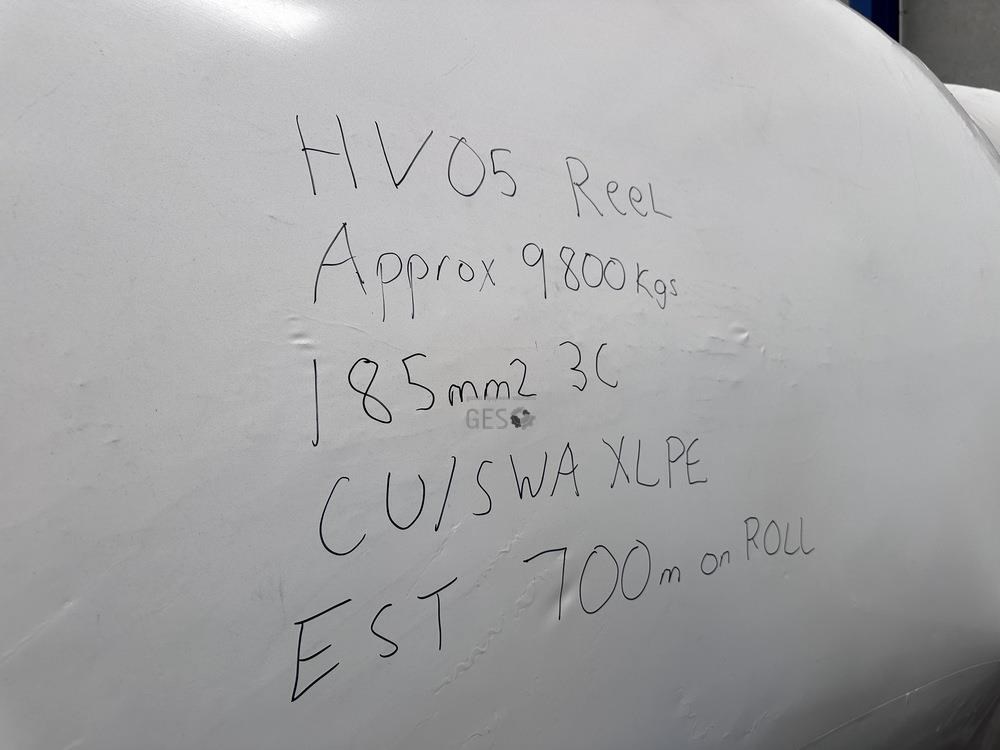 HV05 Reel
Approx 9800kgs
185mm2 3C
GES
CU/SWA XLPE
EST 700m on ROLL